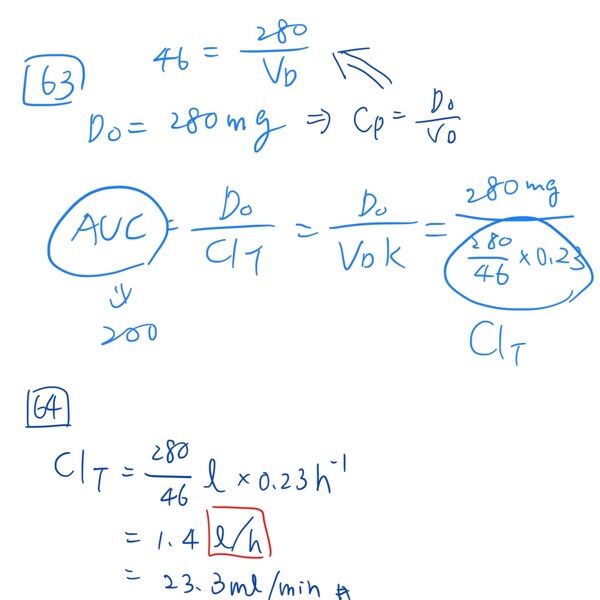 63
46 = 280/V_D
D_0 = 280mg ⇒ Cp = D_0/V_D
AUC = D_0/Cl_T = D_0/(V_D k) = 280mg/(280/46 × 0.23)
200
Cl_T
64
Cl_T = 280/46 l × 0.23 h^-1
= 1.4 l/h
= 23.3 ml/min #